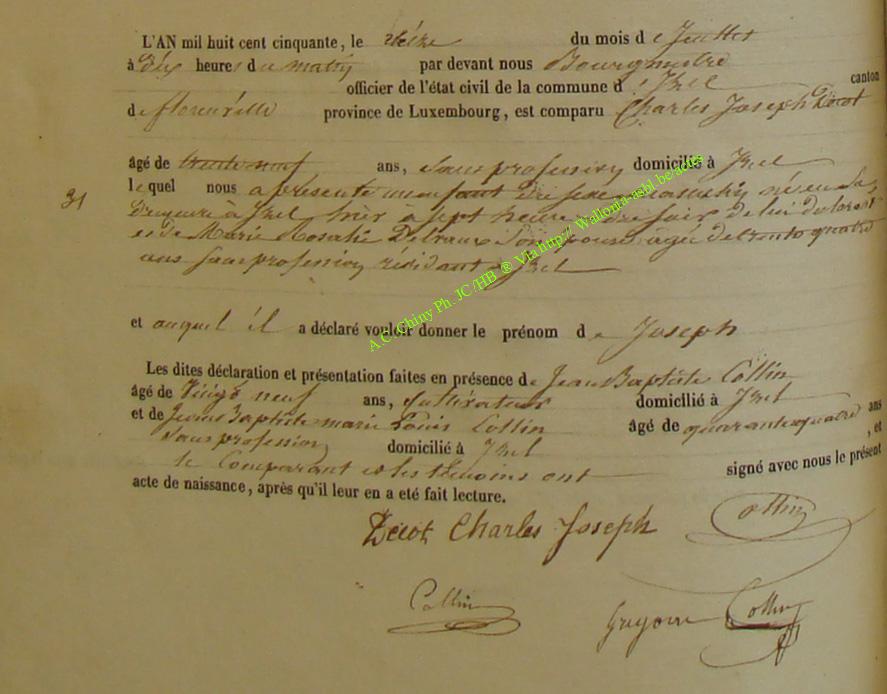 L'AN mil huit cent cinquante, le du mois de Juillet
à dix heures du matin par devant nous Bourgmestre
officier de l'état civil de la commune d'Izel canton
de florenville province de Luxembourg, est comparu Charles Joseph Decot
âgé de trente neuf ans, Sans profession domicilié à Izel
31
lequel nous a présenté un enfant du sexe masculin, né en sa
à Izel hier à sept heures du soir de lui déclarant
et de Marie Rosalie Son épouse âgée de trente quatre
ans sans profession résidant à Izel
et auquel il a déclaré vouloir donner le prénom de Joseph
Les dites déclaration et présentation faites en présence de Jean Baptiste Collin
âgé de Vingt neuf ans, cultivateur domicilié à Izel
et de Jean Baptiste marie Louis Collin âgé de quarante quatre ans
Sans profession domicilié à Izel , et
le Comparant et les témoins ont signé avec nous le présent
acte de naissance, après qu'il leur en a été fait lecture.
Decot Charles Joseph Collin
Collin Collin
A.C. Chiny Ph. JC/HB ® Via http// Wallonia-asbl.be/actes